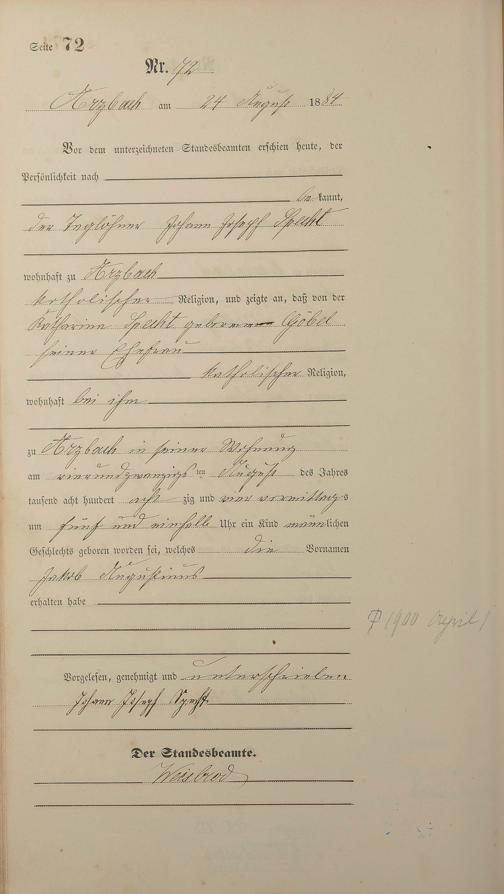 Seite 72
Nr. 72
Arzbach am 24 August 1884
Vor dem unterzeichneten Standesbeamten erschien heute, der
Persönlichkeit nach
be kannt,
der Taglöhner Johann Joseph Specht
wohnhaft zu Arzbach
katholischer Religion, und zeigte an, daß von der
Katharina Specht geborene Göbel
seiner Ehefrau
katholischer Religion,
wohnhaft bei ihm
zu Arzbach in seiner Wohnung
am vierundzwanzigs ten August des Jahres
tausend acht hundert acht zig und vier vormittags
um fünf und einhalb Uhr ein Kind männlichen
Geschlechts geboren worden sei, welches die Vornamen
Jakob Augustinus
erhalten habe
1900 April
Vorgelesen, genehmigt und unterschrieben
Johann Joseph Specht
Der Standesbeamte.
Weisbrod